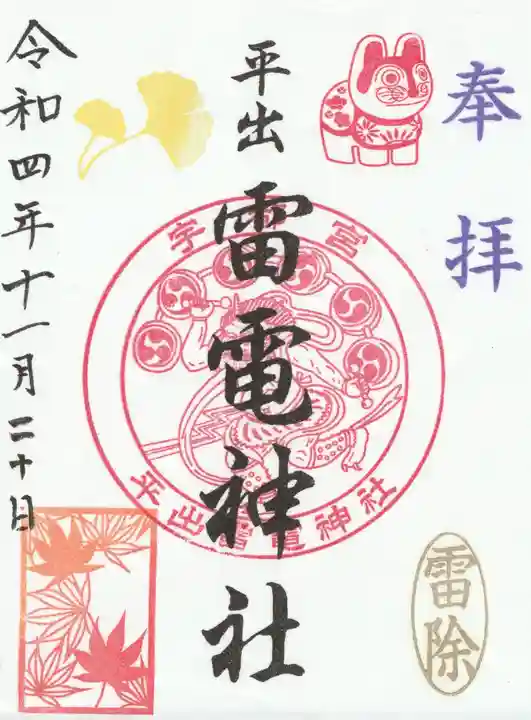 奉拝
平出
雷電神社
令和四年十一月二十日
宇都宮
平出雷電神社
雷除